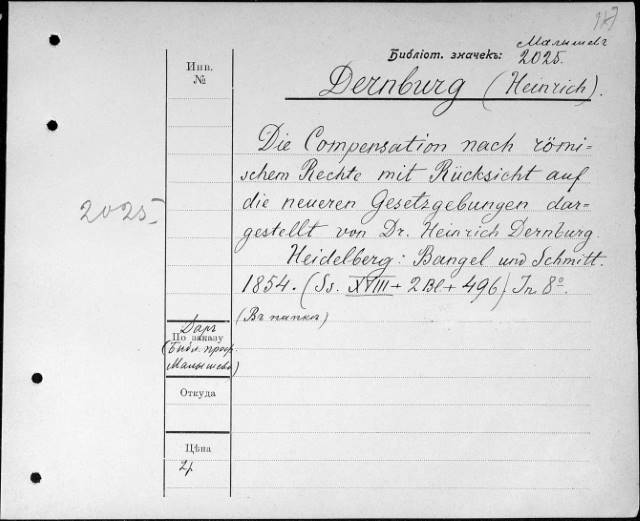 Малышевъ
Библіот. значекъ: 2025.
Инв.
№
Dernburg (Heinrich).
Die Compensation nach römi=
schem Rechte mit Rücksicht auf
die neueren Gesetzgebungen dar=
gestellt von Dr. Heinrich Dernburg.
Heidelberg: Bangel und Schmitt.
1854. (Ss. XVIII + 2 Bl + 496) In 8º.
(Въ папкѣ)
2025
Даръ
По заказу
(Библ. проф.
Малышева)
Откуда
Цѣна